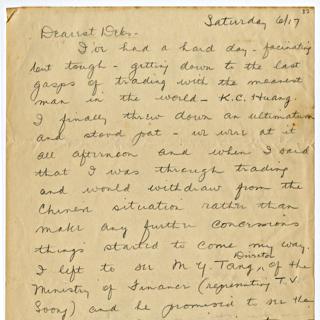 Saturday 6/17
Dearest Debs-
I've had a hard day - facinating
but tough - getting down to the last
gasps of trading with the meanest
man in the world - K.C. Huang.
I finally threw down an ultimatum
and stood pat - we were at it
all afternoon and when I said
that I was through trading
and would withdraw from the
Chinese situation rather than
make any further concessions
things started to come my way.
Director
I left to see M.Y. Tang, of the
Ministry of Finance (representing T.V.
Soong) and he promised to see the